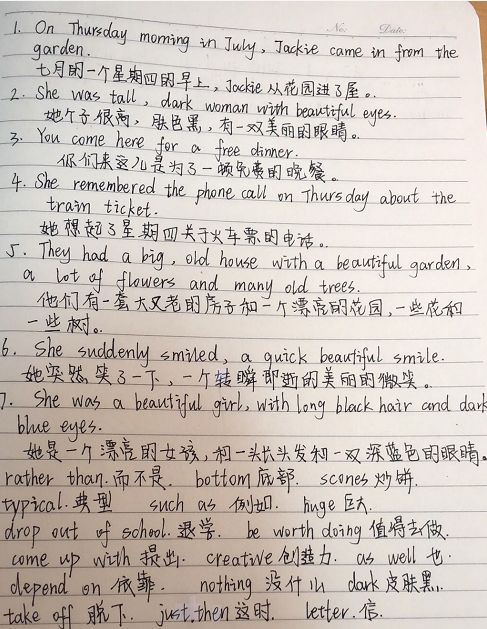 No: Date:
1. On Thursday morning in July, Jackie came in from the
garden.
七月的一个星期四的早上，Jackie从花园进了屋。
2. She was tall, dark woman with beautiful eyes.
她个子很高，肤色黑，有一双美丽的眼睛。
3. You come here for a free dinner.
你们来这儿是为了一顿免费的晚餐。
4. She remembered the phone call on Thursday about the
train ticket.
她想起了星期四关于火车票的电话。
5. They had a big, old house with a beautiful garden,
a lot of flowers and many old trees.
他们有一套大又老的房子和一个漂亮的花园，一些花和
一些树。
6. She suddenly smiled, a quick beautiful smile.
她突然笑了一下，一个转瞬即逝的美丽的微笑。
7. She was a beautiful girl, with long black hair and dark
blue eyes.
她是一个漂亮的女孩，和一头长头发和一双深蓝色的眼睛。
rather than.而不是. bottom底部. scones炒饼.
typical.典型 such as 例如. huge巨大.
drop out of school.退学. be worth doing值得去做.
come up with提出. creative创造力. as well也.
depend on依靠. nothing没什么 dark皮肤黑.
take off 脱下. just then这时. letter.信.